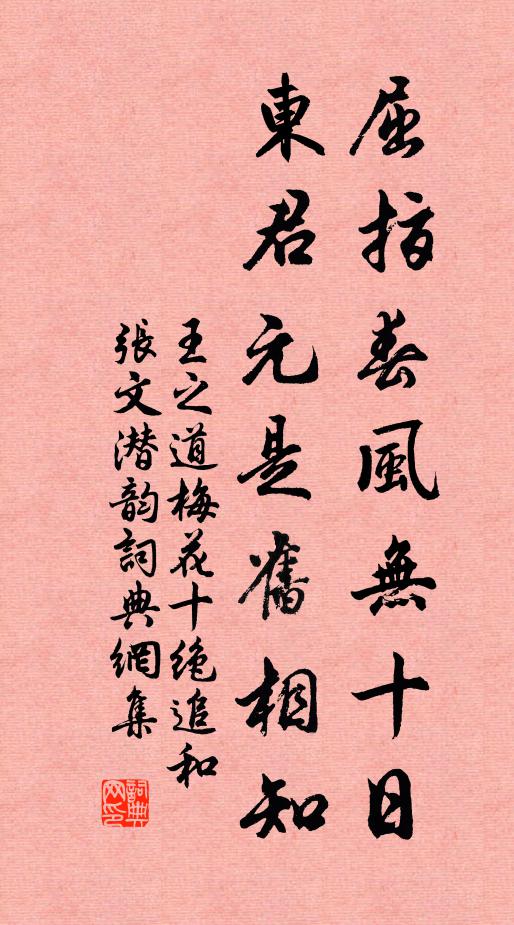 屈指春風無十日
東君元是舊相知
王之道梅花十絕追和
張文潛韵詞典網集
詞典網印